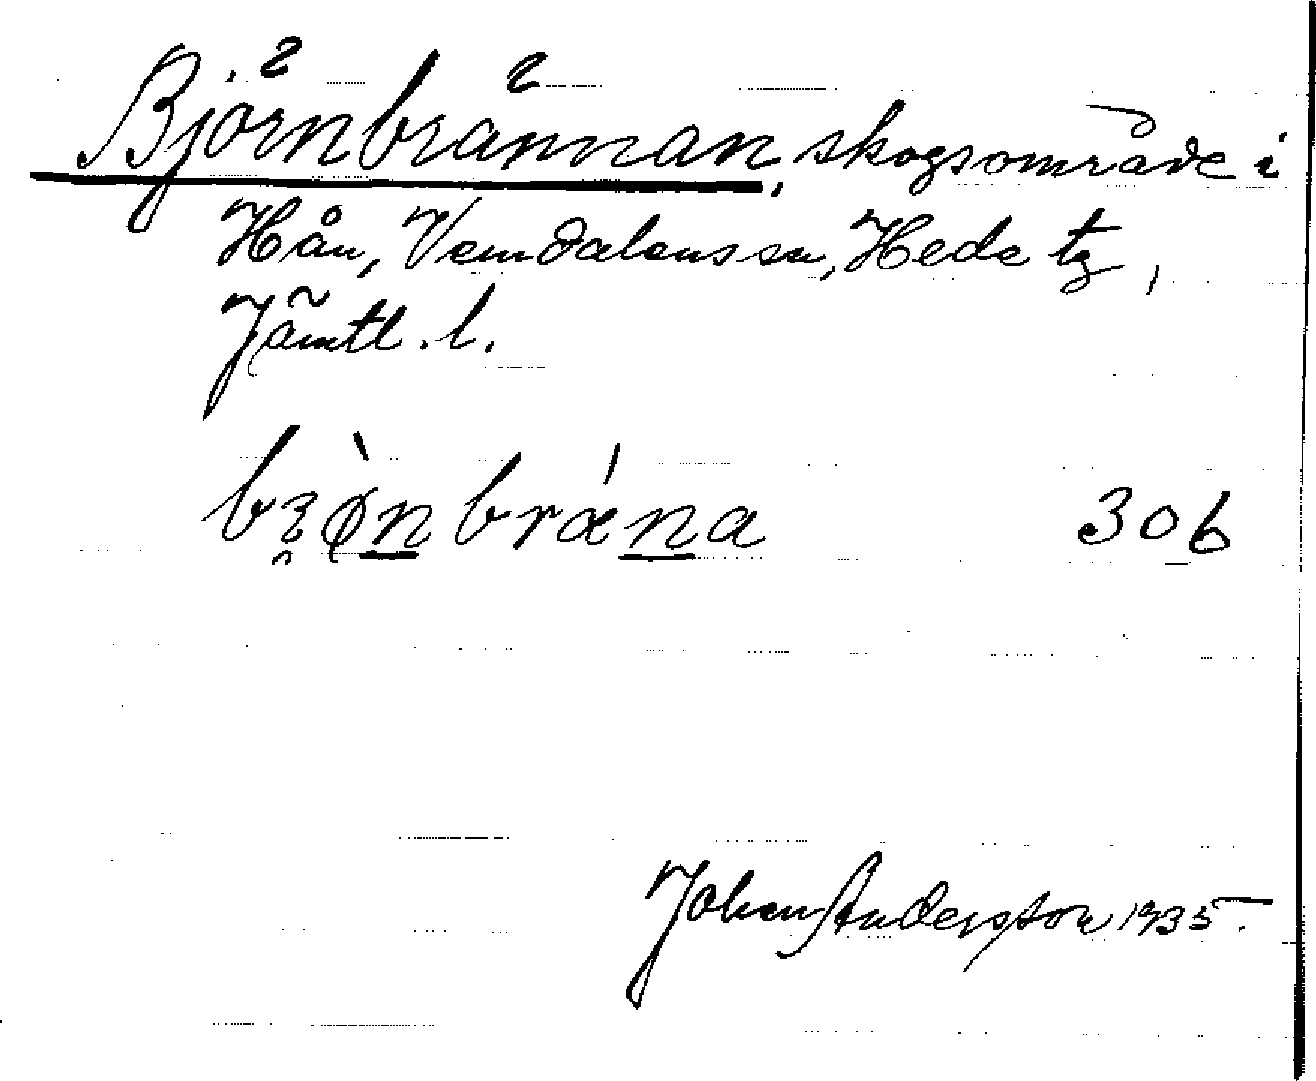 Björnbrännan, skogsområde i
Hån, Vemdalens sn, Hede tg,
Jämtl. l.
306
Johan Andersson 1935.